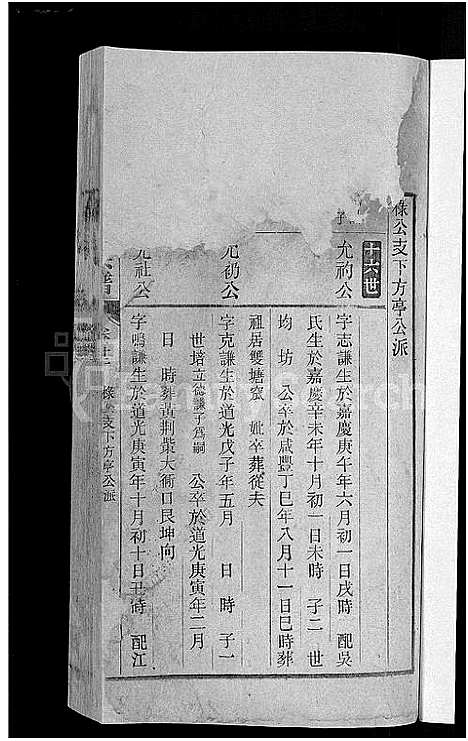 祿公支下方亭公派
十六世
允礿公
字志謙生於嘉慶庚午年六月初一日戌時 配吳
氏生於嘉慶辛未年十月初一日未時 子二 世
均 坊 公卒於咸豐丁巳年八月十一日巳時葬
祖居雙塘窩 妣卒葬從夫
允礽公
字克謙生於道光戊子年五月 日 時 子一
世培立德謙子為嗣 公卒於道光庚寅年二月
日 時葬黃荆柴大衝口艮坤向
允社公
字鳴謙生於道光庚寅年十月初十日丑時 配江
祿公支下方亭公派